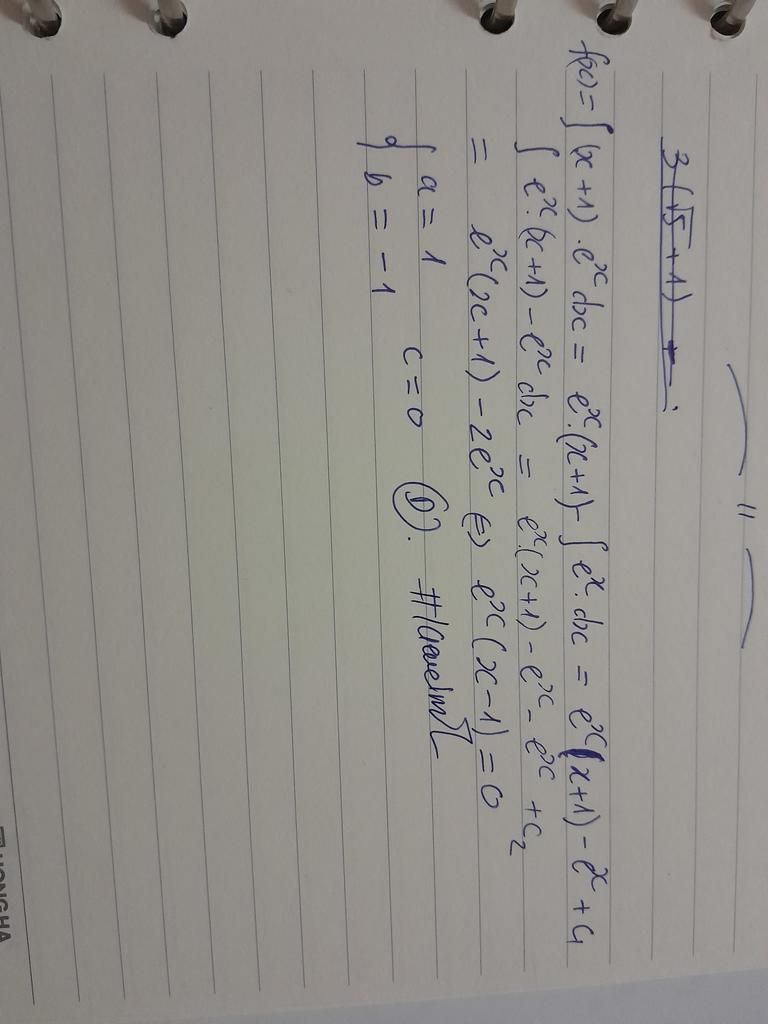 3(√5+1) +
f(x) = ∫ (x+1) . e^x dx = e^x.(x+1) - ∫ e^x . dx = e^x (x+1) - e^x + C₁
∫ e^x.(x+1) - e^x dx = e^x(x+1) - e^x - e^x + C₂
= e^x (x+1) - 2e^x ⇔ e^x (x-1) = 0
{ a = 1
b = -1
c = 0 D.
HONGHA